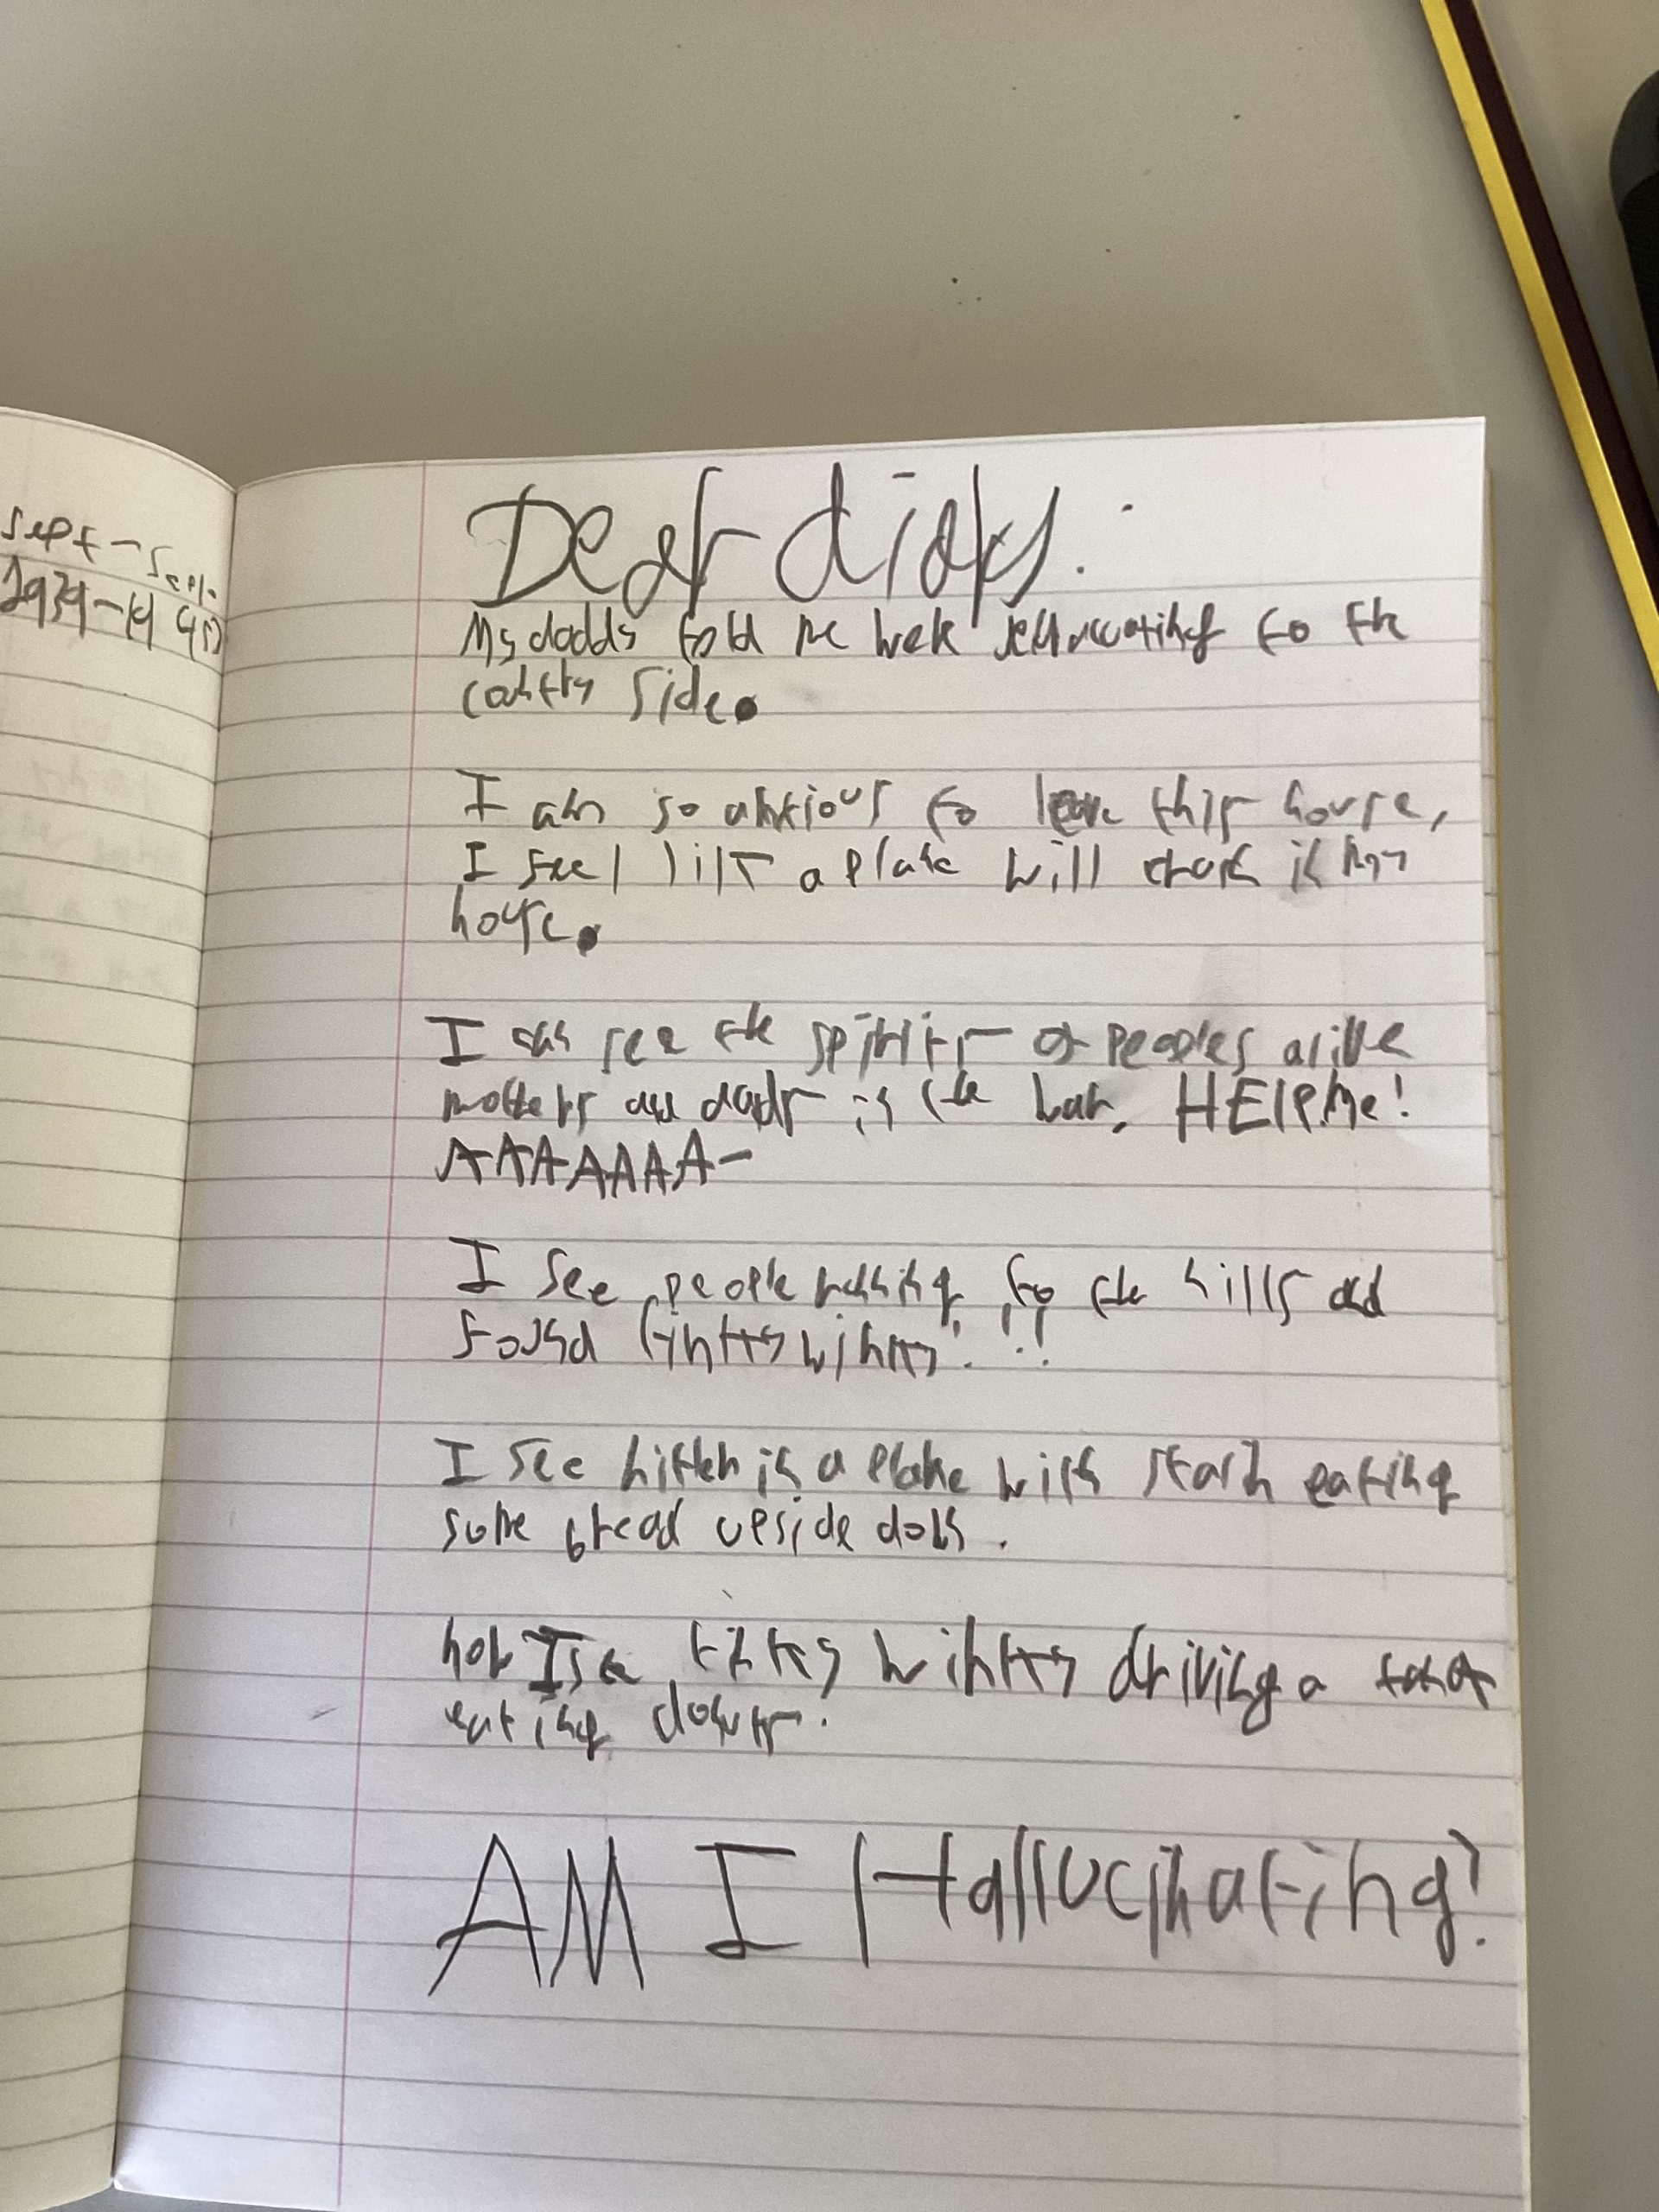 Sept - Sept.
1939 - 1945
Dear diary.
My daddy told me were to the
county side.
I am so anxious to leave this house,
I feel like a plane will crash in my
house.
I can see the spirits of peoples alive
mothers and dads in the war, HElP Me!
AAAAAAA-
I see people running to the hills and
found
I see hitler in a plane with eating
some bread upside down.
now I see tinky winky driving a tank
eating
AM I Hallucinating?